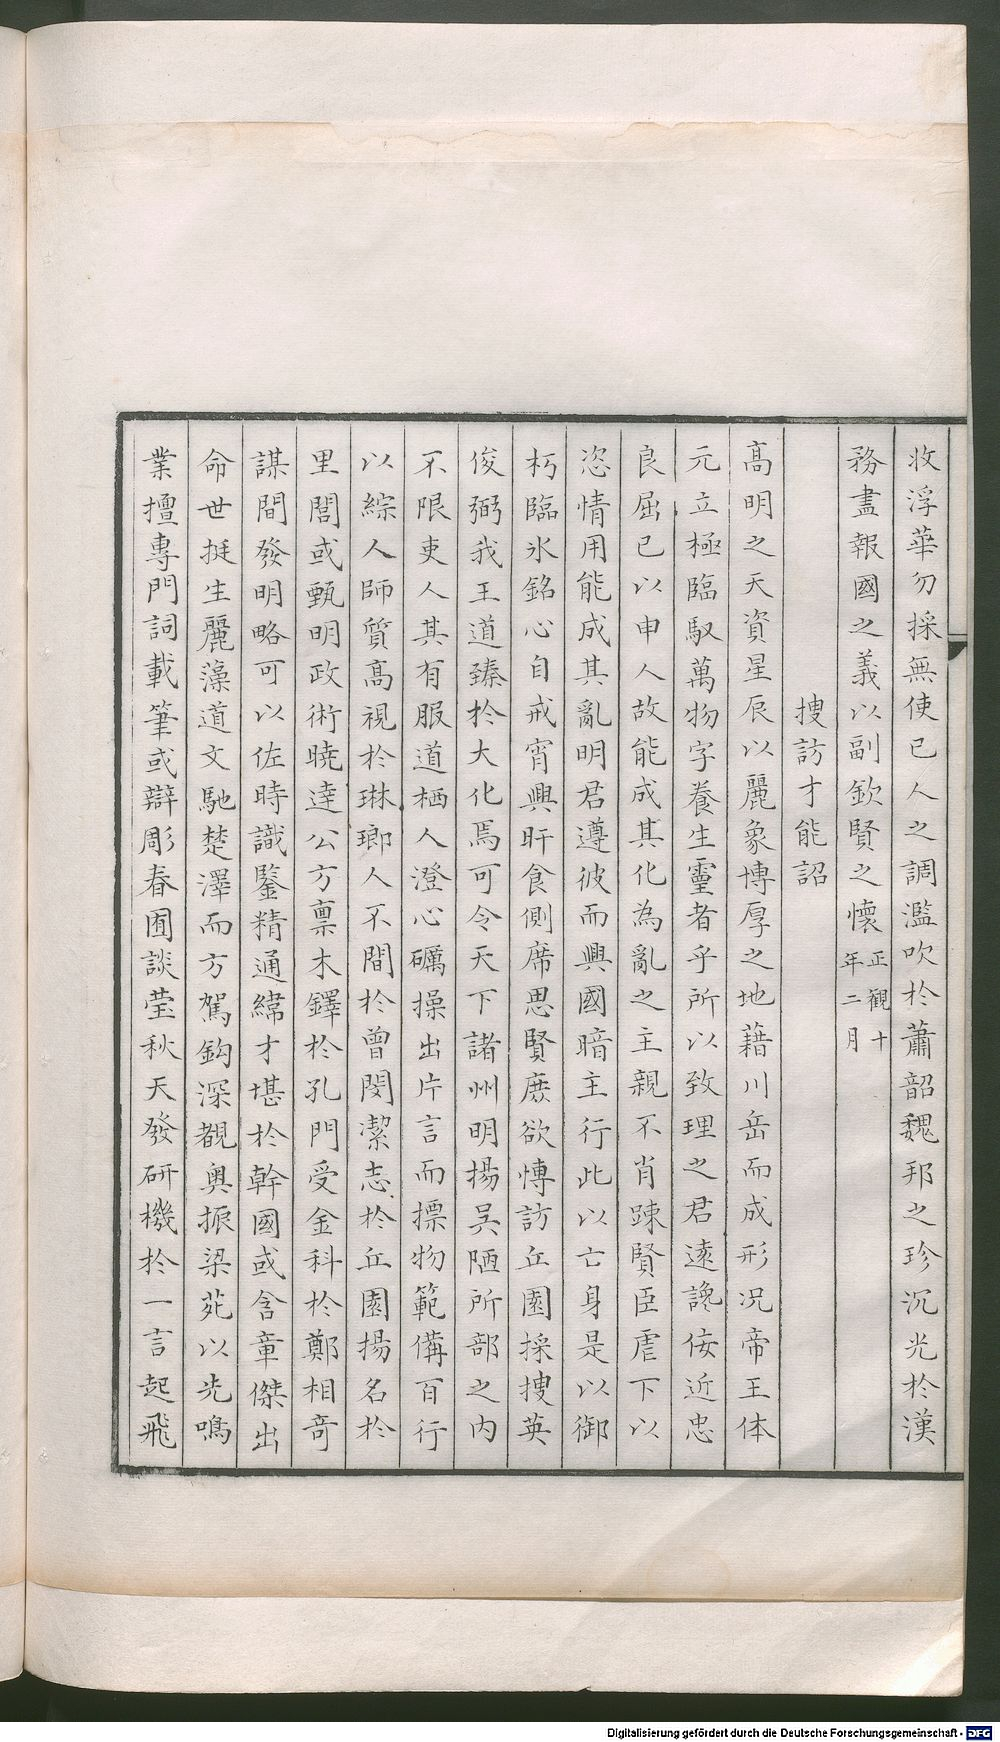 收浮華勿採無使已人之調濫吹於蕭韶魏邦之珍沉光於漢
務盡報國之義以副欽賢之懷正觀十年二月
搜訪才能詔
高明之天資星辰以麗象博厚之地藉川岳而成形况帝王体
元立極臨馭萬物字養生靈者乎所以致理之君遠讒佞近忠
良屈已以申人故能成其化為亂之主親不肖踈賢臣虐下以
恣情用能成其亂明君遵彼而興國暗主行此以亡身是以御
朽臨氷銘心自戒宵興旰食側席思賢庶欲慱訪丘園採搜英
俊弼我王道臻於大化焉可令天下諸州明揚吴陋所部之内
不限吏人其有服道栖人澄心礪操出片言而摽物範備百行
以綜人師質高視於琳瑯人不間於曾閔潔志於丘園揚名於
里閭或甄明政術曉達公方禀木鐸於孔門受金科於鄭相竒
謀間發明略可以佐時識鑒精通緯才堪於幹國或含章傑出
命世挺生麗藻道文馳楚澤而方駕鈎深覩奥振梁苑以光鳴
業擅專門詞載筆或辯彫春囿談瑩秋天發研機於一言起飛
Digitalisierung gefördert durch die Deutsche Forschungsgemeinschaft - DFG